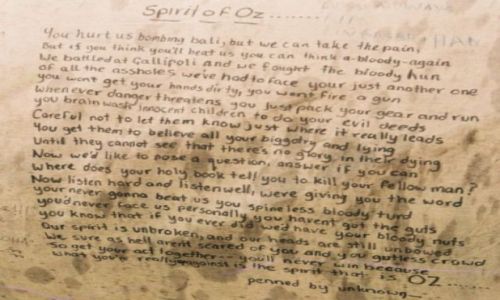 Spirit of Oz.......
You hurt us bombing bali, but we can take the pain,
But if you think you'll beat us you can think a-bloody-again
We battled at Gallipoli and we fought the bloody hun
of all the assholes we've had to face your just another one
you wont get your hands dirty, you wont fire a gun
whenever danger threatens you just pack your gear and run
you brain wash innocent children to do your evil deeds
Careful not to let them know just where it really leads
You get them to believe all your biggotry and lying
Until they cannot see that there's no glory in their dying
Now we'd like to pose a question, answer if you can
where does your holy book tell you to kill your fellow man?
Now listen hard and listen well, were giving you the word
your never gonna beat us you spineless bloody turd
you'd never face us personally you havent got the guts
you know that if you ever did we'd have your bloody nuts
Our spirit is unbroken, and our heads are still unbowed
We sure as hell arent scared of you and you gutless crowd
So get your act together-- you'll never win because
what you're really against is the spirit that is OZ.....
penned by unknown